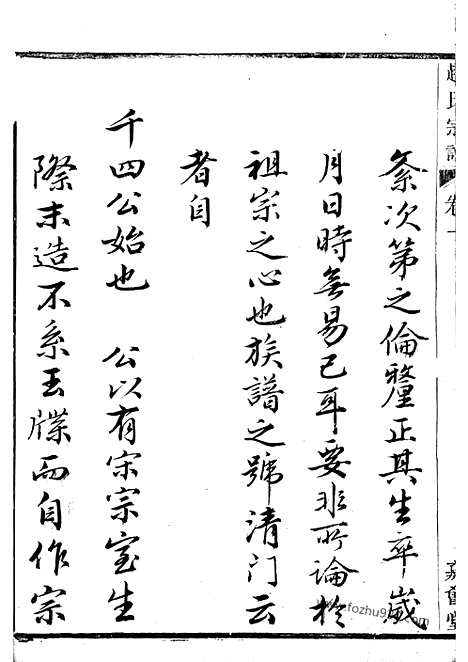 趙氏宗譜 卷一 嘉會堂
紊次第之倫釐正其生卒歲
月日時無易已耳要非所論於
祖宗之心也族譜之號清门云
者自
千四公始也 公以有宋宗室生
際末造不系玉牒而自作宗
www.fozhu920.com